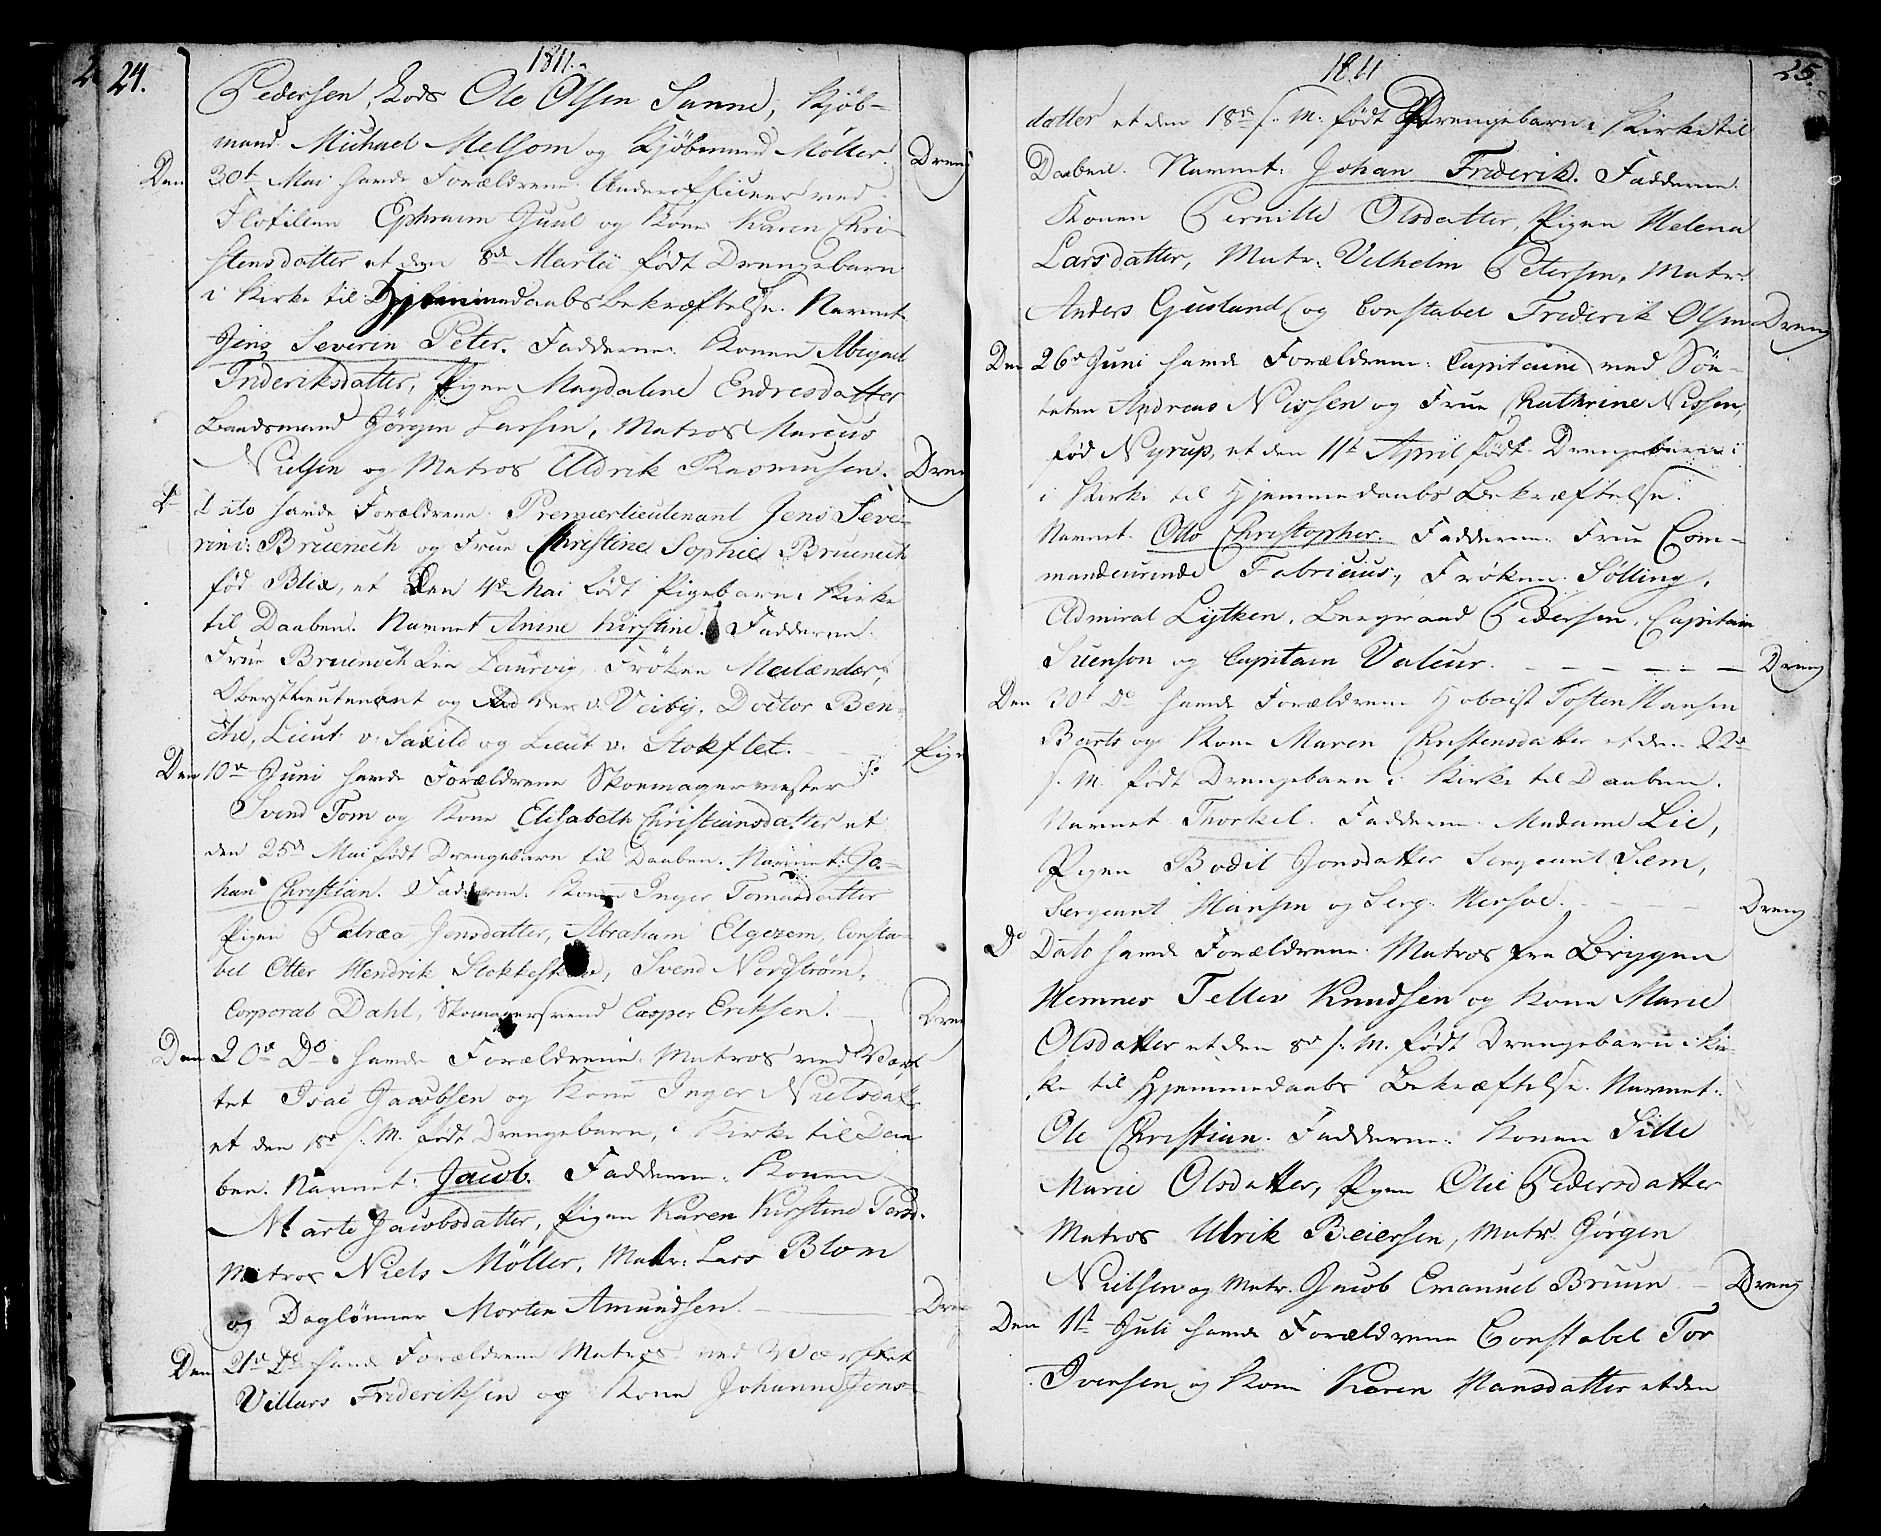 24.
1811.
Pedersen, Lods Ole Olsen Sanne, Kjöb-
mand Michael Melsom og Kjöbmand Möller. Dreng
Den 30t Mai havde Forældrene Underofficeer ved
Flotillen Ephraim Juul og Kone Karen Chri-
stensdatter et den 8de Martii födt Drengebarn
i Kirke til Hjemmedaabs Bekræftelse. Navnet
Jens Severin Peter. Fadderne: Konen Abigael
Frideriksdatter, Pigen Magdalene Endresdatter
Baadsmand Jörgen Larsen, Matros Marcus
Nielsen og Matros Uldrik Rasmusen. Dreng
D Dito havde Forældrene Premierlieutenant Jens Seve-
rin: Bruenech og Frue Christine Sophie Bruenech
föd Blix, et den 4de Mai födt Pigebarn i Kirke
til Daaben. Navnet Anine Kirstine. Fadderne:
Frue Bruenech Laurvig, Fröken Meilænder,
Oberstlieutenant og v. Veiby, Doctor Ben-
, Lieut v. Saxild og Lieut v. Stokflet. Pige
Den 10de Juni havde Forældrene Skoemagermester
Svend Tom og Kone Elisabeth Christiansdatter et
den 25de Mai födt Drengebarn til Daaben. Navnet: Jo-
han Christian. Fadderne. Konen Inger Tomasdatter
Pigen Petræa Jensdatter, Abraham Elgezem, Consta-
bel Otter Hendrik, Svend Nordström,
Corporal Dahl, Skomagersvend Casper Eriksen. Dreng
Den 20de Do havde Forældrene Matros ved Værf-
tet Isac Jacobsen og Kone Inger Nielsdatter
et den 18de s. M. födt Drengebarn, i Kirke til Daa-
ben. Navnet: Jacob. Fadderne: Konen
Marte Jacobsdatter, Pigen Karen Kirstine
Matros Niels Möller, Matr: Lars Blom
og Daglönner Morten Amundsen. Dreng
Den 21de Do havde Forældrene Matros ved Værftet
Villars Frideriksen og Kone Johanne Jens-
1811
25.
datter et den 18de s. M. födt Drengebarn i Kirke til
Daaben. Navnet: Johan Friderik. Fadderne:
Konen Pernille Olsdatter, Pigen Helena
Larsdatter, Matr: Vilhelm Petersen, Matr:
Anders Gusland og Constabel Friderik Olsen Dreng
Den 26de Juni havde Forældrene: Capitaine ved Söe-
teten Andreas Nissen og Frue Chathrine Nissen,
föd Nyrup, et den 11te April födt Drengebarn i
i Kirke til Hjemmedaabs Bekræftelse.
Navnet: Otto Christopher. Fadderne: Frue Com-
mandeurinde Fabricius, Fröken Sölling,
Admiral Lytken, Pedersen, Capitain
Suenson og Capitain Valeur. Dreng
Den 30t Do havde Forældrene Hoboist Tosten Hansen
Barts og Kone Maren Christensdatter et den 22de
s. M. födt Drengebarn i Kirke til Daaben.
Navnet Thorkel. Fadderne: Madame Lie,
Pigen Bodil Jonsdatter Sergeant Sem,
Sergeant Hansen og Serg. Hersoe. Dreng
Do Dato havde Forældrene: Matros fra Briggen
Hemnes Tellev Knudsen og Kone Marie
Olsdatter et den 8de s. M. födt Drengebarn i Kir-
ke til Hjemmedaabs Bekræftelse. Navnet:
Ole Christian. Fadderne: Konen Sille
Marie Olsdatter, Pigen Olie Pedersdatter
Matros Ulrik Beiersen, Matr. Jörgen
Nielsen og Matr. Jacob Emanuel Bruun Dreng
Den 1te Juli havde Forældrene Constabel Tor
Iversen og Kone Karen Hansdatter et den